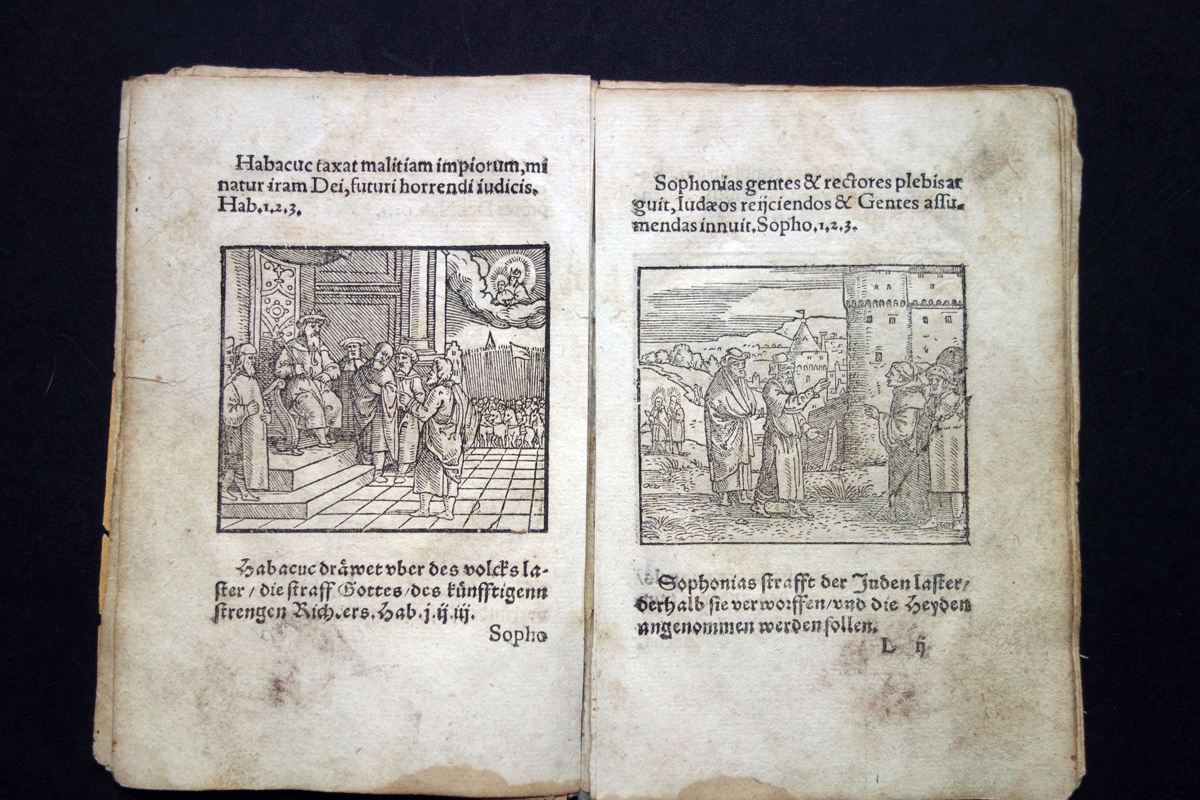 Habacuc taxat malitiam impiorum, mi
natur iram Dei, futuri horrendi iudicis.
Hab. 1. 2. 3.
Habacuc dråwet vber des volcks la-
ster / die straff Gottes / des künfftigenn
strengen Rich ers. Hab. j. ij. iij.
Sopho
Sophonias gentes & rectores plebis ar
guit, Iudæos reijciendos & Gentes assu-
mendas innuit. Sopho. 1. 2. 3.
Sophonias strafft der Juden laster /
derhalb sie verworffen / vnd die Heyden
angenommen werden sollen.
L ij